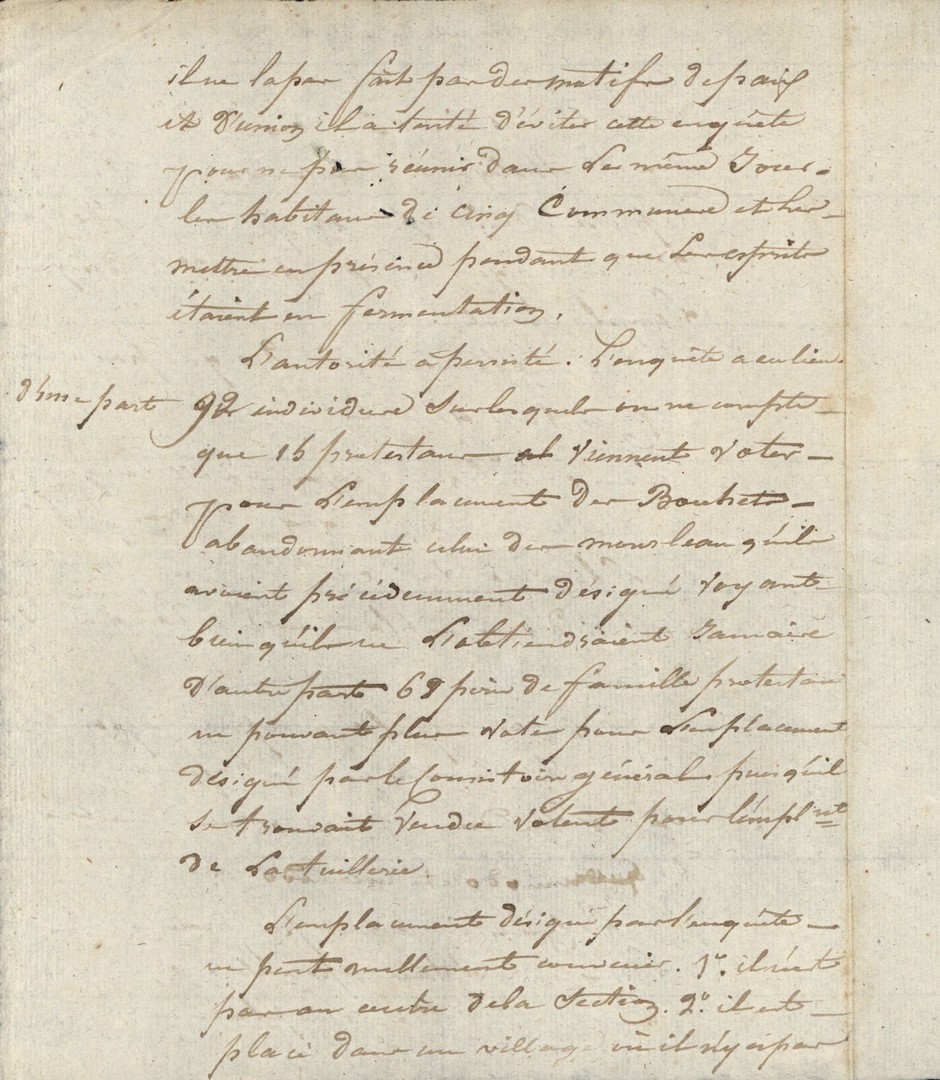 il ne la pas fait par des motifs de paix
et d'union il a tenté d'éviter cette enquête
pour ne pas réunir dans le même Jour
les habitans de cinq Communes et les
mettre en présence pendant que les esprits
étaient en fermentation.
L'autorité a persisté. L'enquête a eu lieu
d'une part 92 individus sur lesquels on ne compte
que 15 protestans viennent voter
pour l'emplacement des Bouhets
abandonnant celui des mousleau qu'ils
avaient précédemment désigné voyant
bien qu'ils ne l'obtiendraient Jamais
D'autre part 68 pères de famille protestans
ne pouvant plus voter pour l'emplacement
désigné par le Consistoire général puisqu'il
se trouvait vendu votent pour l'empl.nt
de La tuillerie.
L'emplacement désigné par l'enquête
ne peut nullement convenir. 1.° il n'est
pas au centre de la Section. 2.° il est
placé dans un village où il n'y a pas